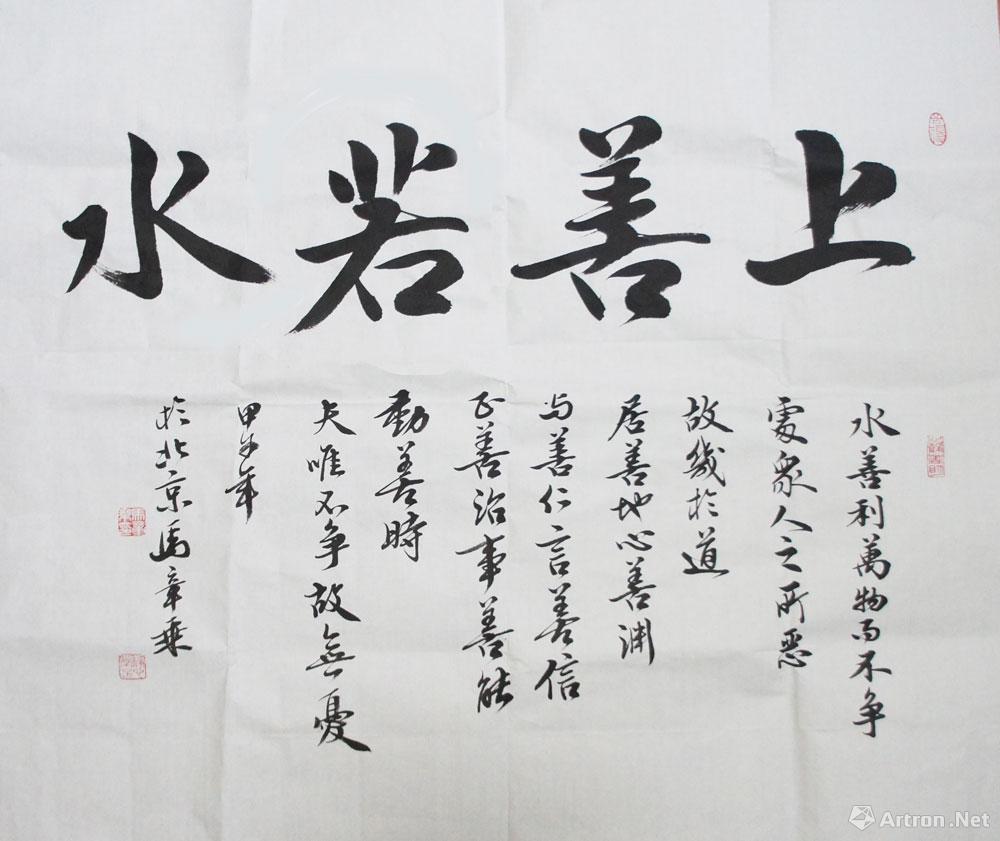 上善若水
水善利萬物而不争
處衆人之所惡
故幾於道
居善地心善渊
与善仁言善信
正善治事善能
動善時
夫唯不争故無憂
甲午年
於北京馬章乘
Artron.Net